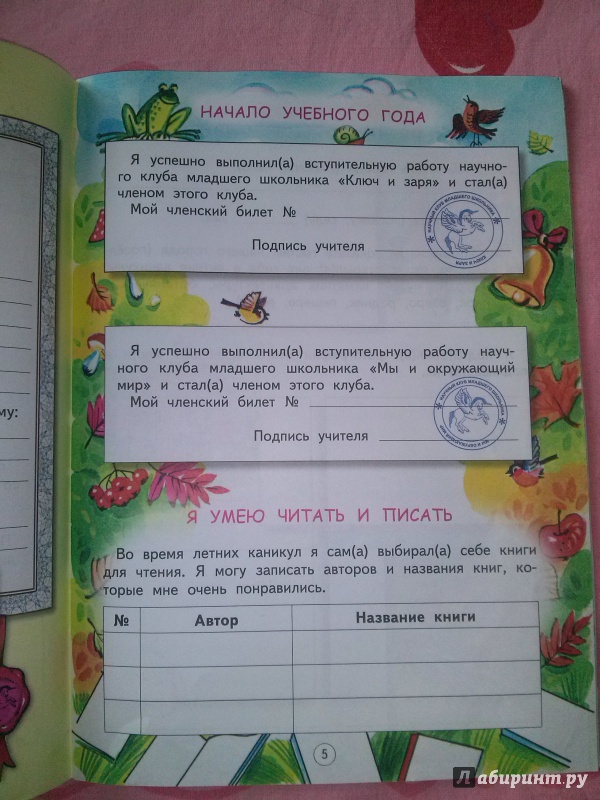 НАЧАЛО УЧЕБНОГО ГОДА
Я успешно выполнил(а) вступительную работу научно-
го клуба младшего школьника «Ключ и заря» и стал(а)
членом этого клуба.
Мой членский билет №
НАУЧНЫЙ КЛУБ МЛАДШЕГО ШКОЛЬНИКА
КЛЮЧ И ЗАРЯ
Подпись учителя
Я успешно выполнил(а) вступительную работу науч-
ного клуба младшего школьника «Мы и окружающий
мир» и стал(а) членом этого клуба.
Мой членский билет №
НАУЧНЫЙ КЛУБ МЛАДШЕГО ШКОЛЬНИКА
МЫ И ОКРУЖАЮЩИЙ МИР
Подпись учителя
му:
Я УМЕЮ ЧИТАТЬ И ПИСАТЬ
Во время летних каникул я сам(а) выбирал(а) себе книги
для чтения. Я могу записать авторов и названия книг, ко-
торые мне очень понравились.
№ Автор Название книги
5
Лабиринт.ру